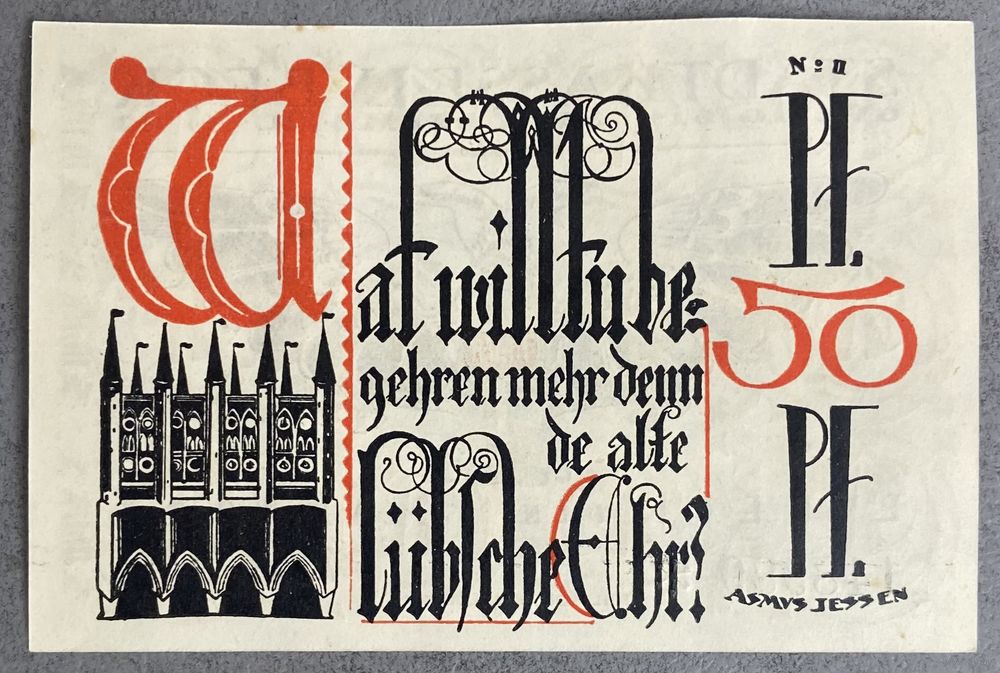 Wat willtu be-
gehren mehr denn
de alte
lübsche Ehr?
No II
PF.
50
PF.
ASMVS JESSEN